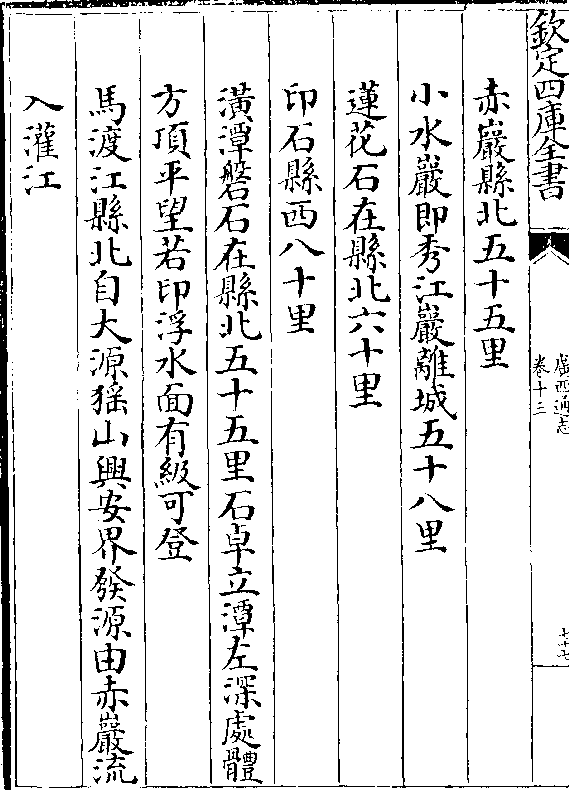 欽定四庫全書
廣西通志
卷十三
七十七
赤巖縣北五十五里
小水巖即秀江巖離城五十八里
蓮花石在縣北六十里
印石縣西八十里
潢潭磐石在縣北五十五里石卓立潭左深處體
方項平望若印浮水面有級可登
馬渡江縣北自大源猺山興安界發源由赤巖流
入灌江